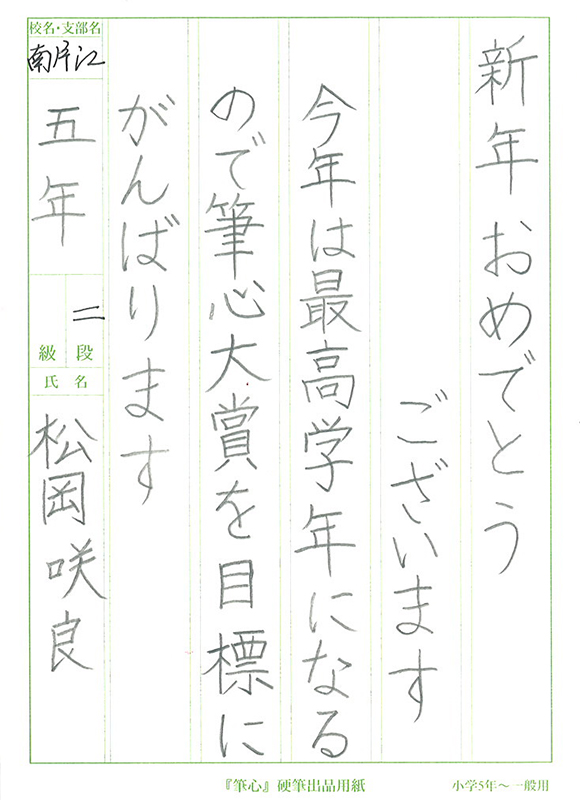 新年おめでとう
ございます
今年は最高学年になる
ので筆心大賞を目標に
がんばります
校名・支部名
南片江
五年
二
級 段
氏名
松岡咲良
『筆心』硬筆出品用紙
小学5年〜一般用